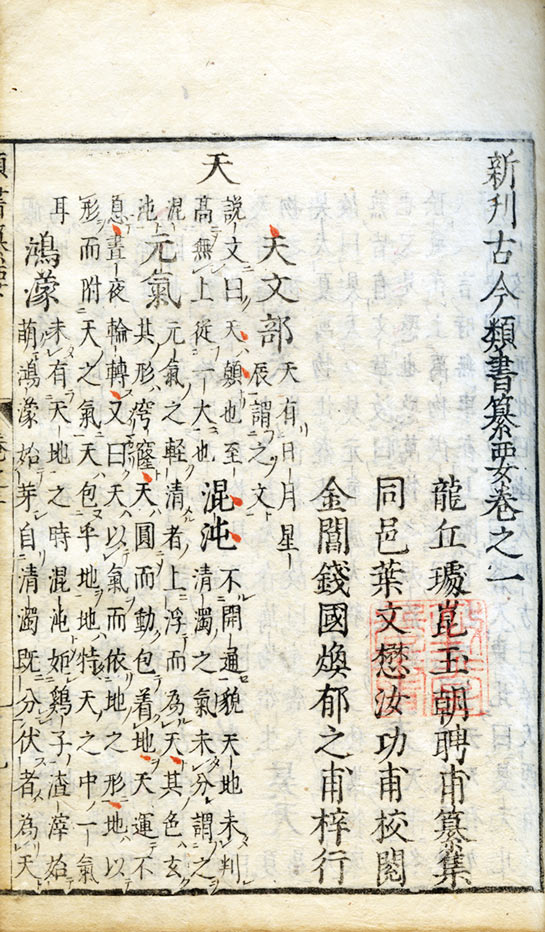 新刊古今類書纂要卷之一
龍丘璩崑玉朝聘甫纂集
同邑葉文懋汝功甫校閱
金閶錢國煥郁之甫梓行
天文部
天有日月星
辰謂之文
天
說文曰天顛也至
高無上從一大也
混沌
不開通貌天地未判
清濁之氣未分謂之
混
沌
元氣
元氣之輕清者上浮而為天其色玄
其形穹窿天圓而動包着地天運不
息晝夜輪轉又曰天以氣而依地之形地以
形而附天之氣天包乎地地特天之中一氣
耳
鴻濛
未有天地之時混沌如雞子渣滓始
萌鴻濛始芽自清濁既分伏者為天